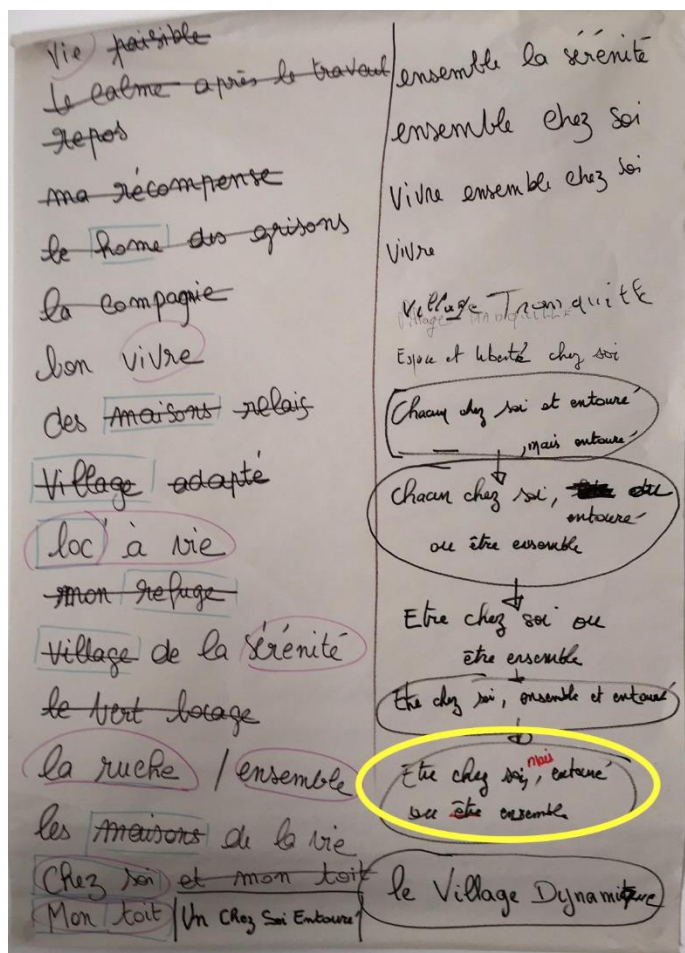 Vie paisible
le calme après le travail
repos
ma récompense
le home des grisons
la compagnie
bon vivre
des maisons relais
Village adapté
loc' à vie
mon refuge
village de la sérénité
le vert bocage
la ruche / ensemble
les maisons de la vie
Chez soi et mon toit
Mon toit | Un Chez Soi Entouré
ensemble la sérénité
ensemble chez soi
Vivre ensemble chez soi
Vivre
Village Tranquille
Espace et liberté chez soi
Chacun chez soi et entouré
, mais entouré
Chacun chez soi, ou
entouré
ou être ensemble
Etre chez soi ou
être ensemble
Etre chez soi, ensemble et entouré
Etre chez soi, mais entouré
ou être ensemble
le Village Dynamique